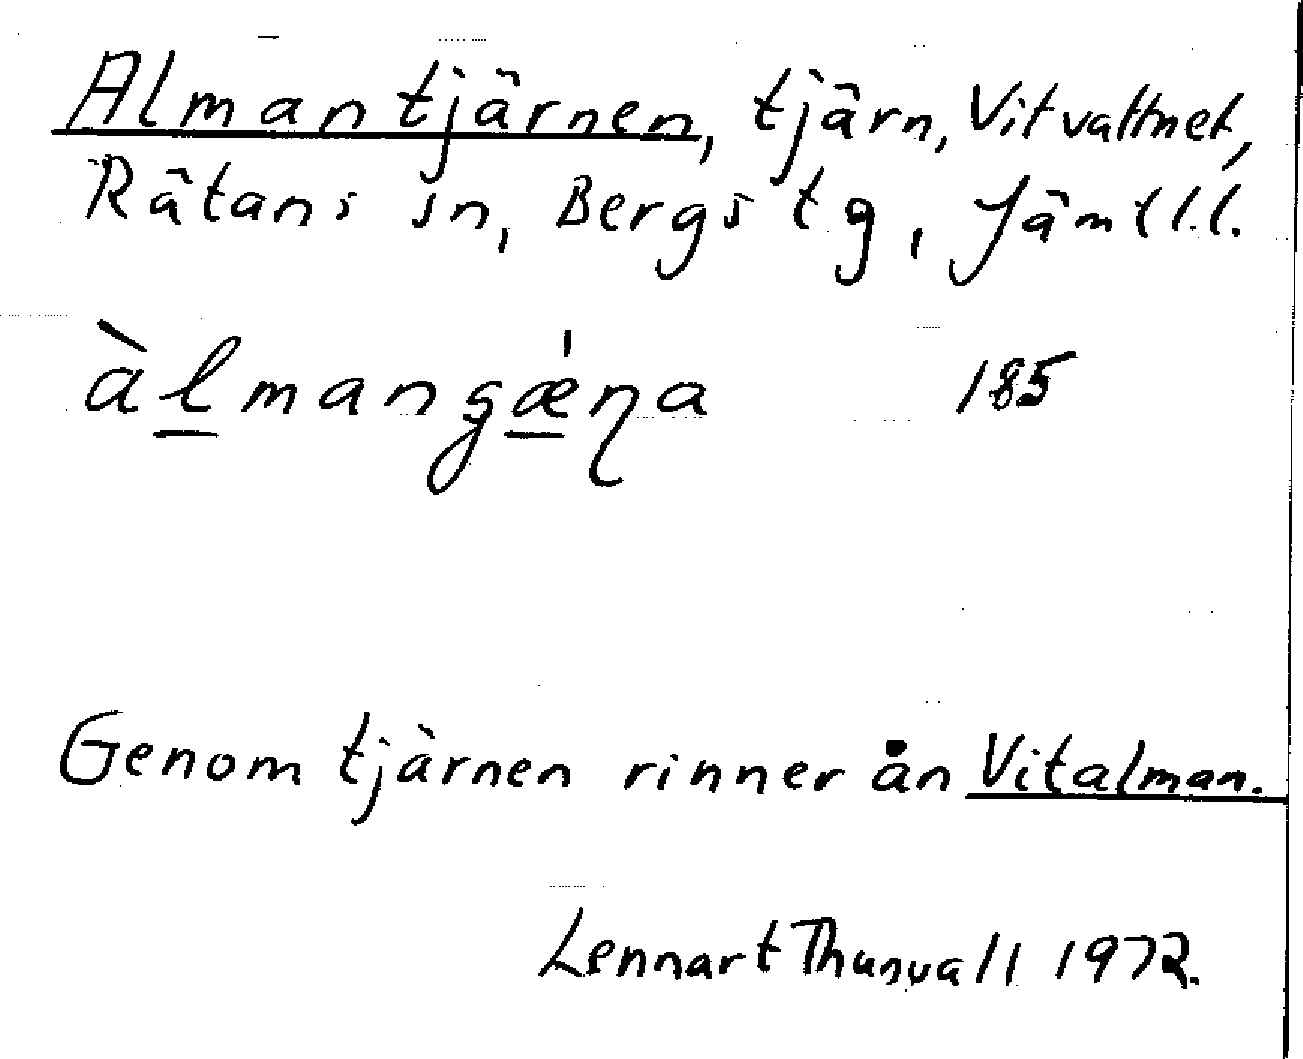 Almantjärnen, tjärn, Vitvattnet,
Rätans sn, Bergs tg, Jämtl.l.
àlmangǽŋa 185
Genom tjärnen rinner ån Vitalman.
Lennart Thunvall 1972.